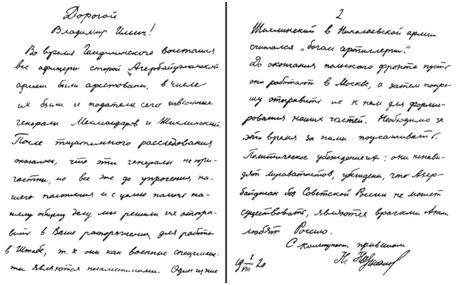 Дорогой
Владимир Ильич!
Во время Гянджинского восстания
все офицеры старой Азербайджанской
армии были арестованы, в числе
их были и податели сего известные
генералы Мехмандаров и Шихлинский.
После тщательного расследования
оказалось, что эти генералы не при-
частны, но все же до упрочения на-
шего положения и с целью помочь на-
шему общему делу, мы решили их отпра-
вить в Ваше распоряжение для работы
в Штабе, т.к. они как военные специалис-
ты являются незаменимыми. Один из них
2
Шихлинский в Николаевской армии
считался "богом артиллерии".
До окончания польского фронта пусть
они работают в Москве, а затем попро-
шу отправить их к нам для форми-
рования наших частей. Необходимо за
это время за ними поухаживать.
Политические убеждения их: они ненави-
дят мусаватистов, убеждены, что Азер-
байджан без Советской России не может
существовать, являются врагами Англии
любят Россию.
С коммунист. приветом
Н. Нариманов
1/VIII 20